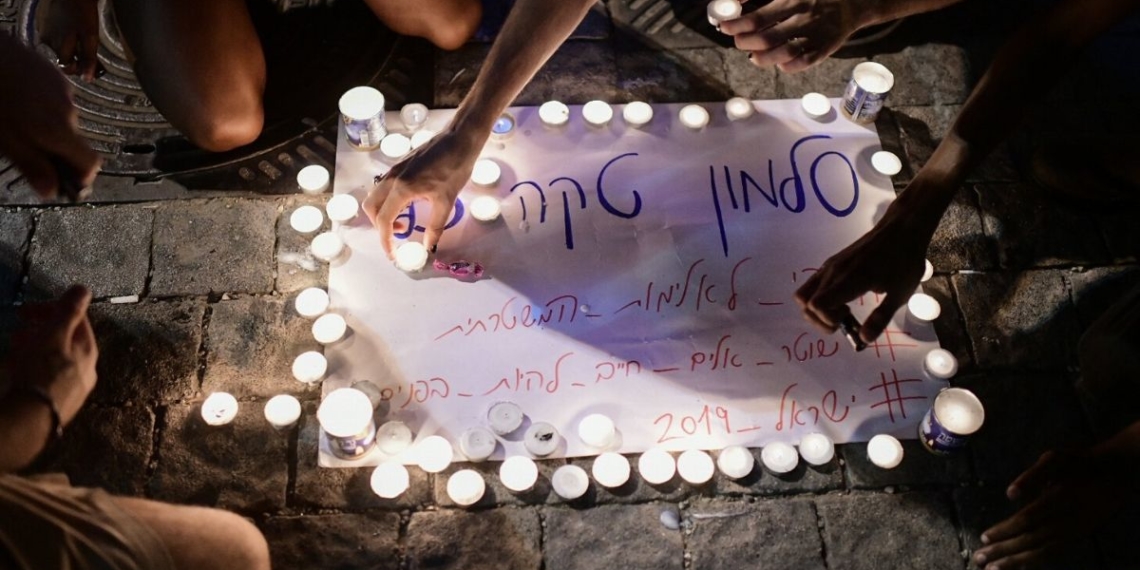 סלמון טקה
לאלימות_המשטרתית
#שוטר_אלים_חייב_להיות_בפנים
#ישראל_2019